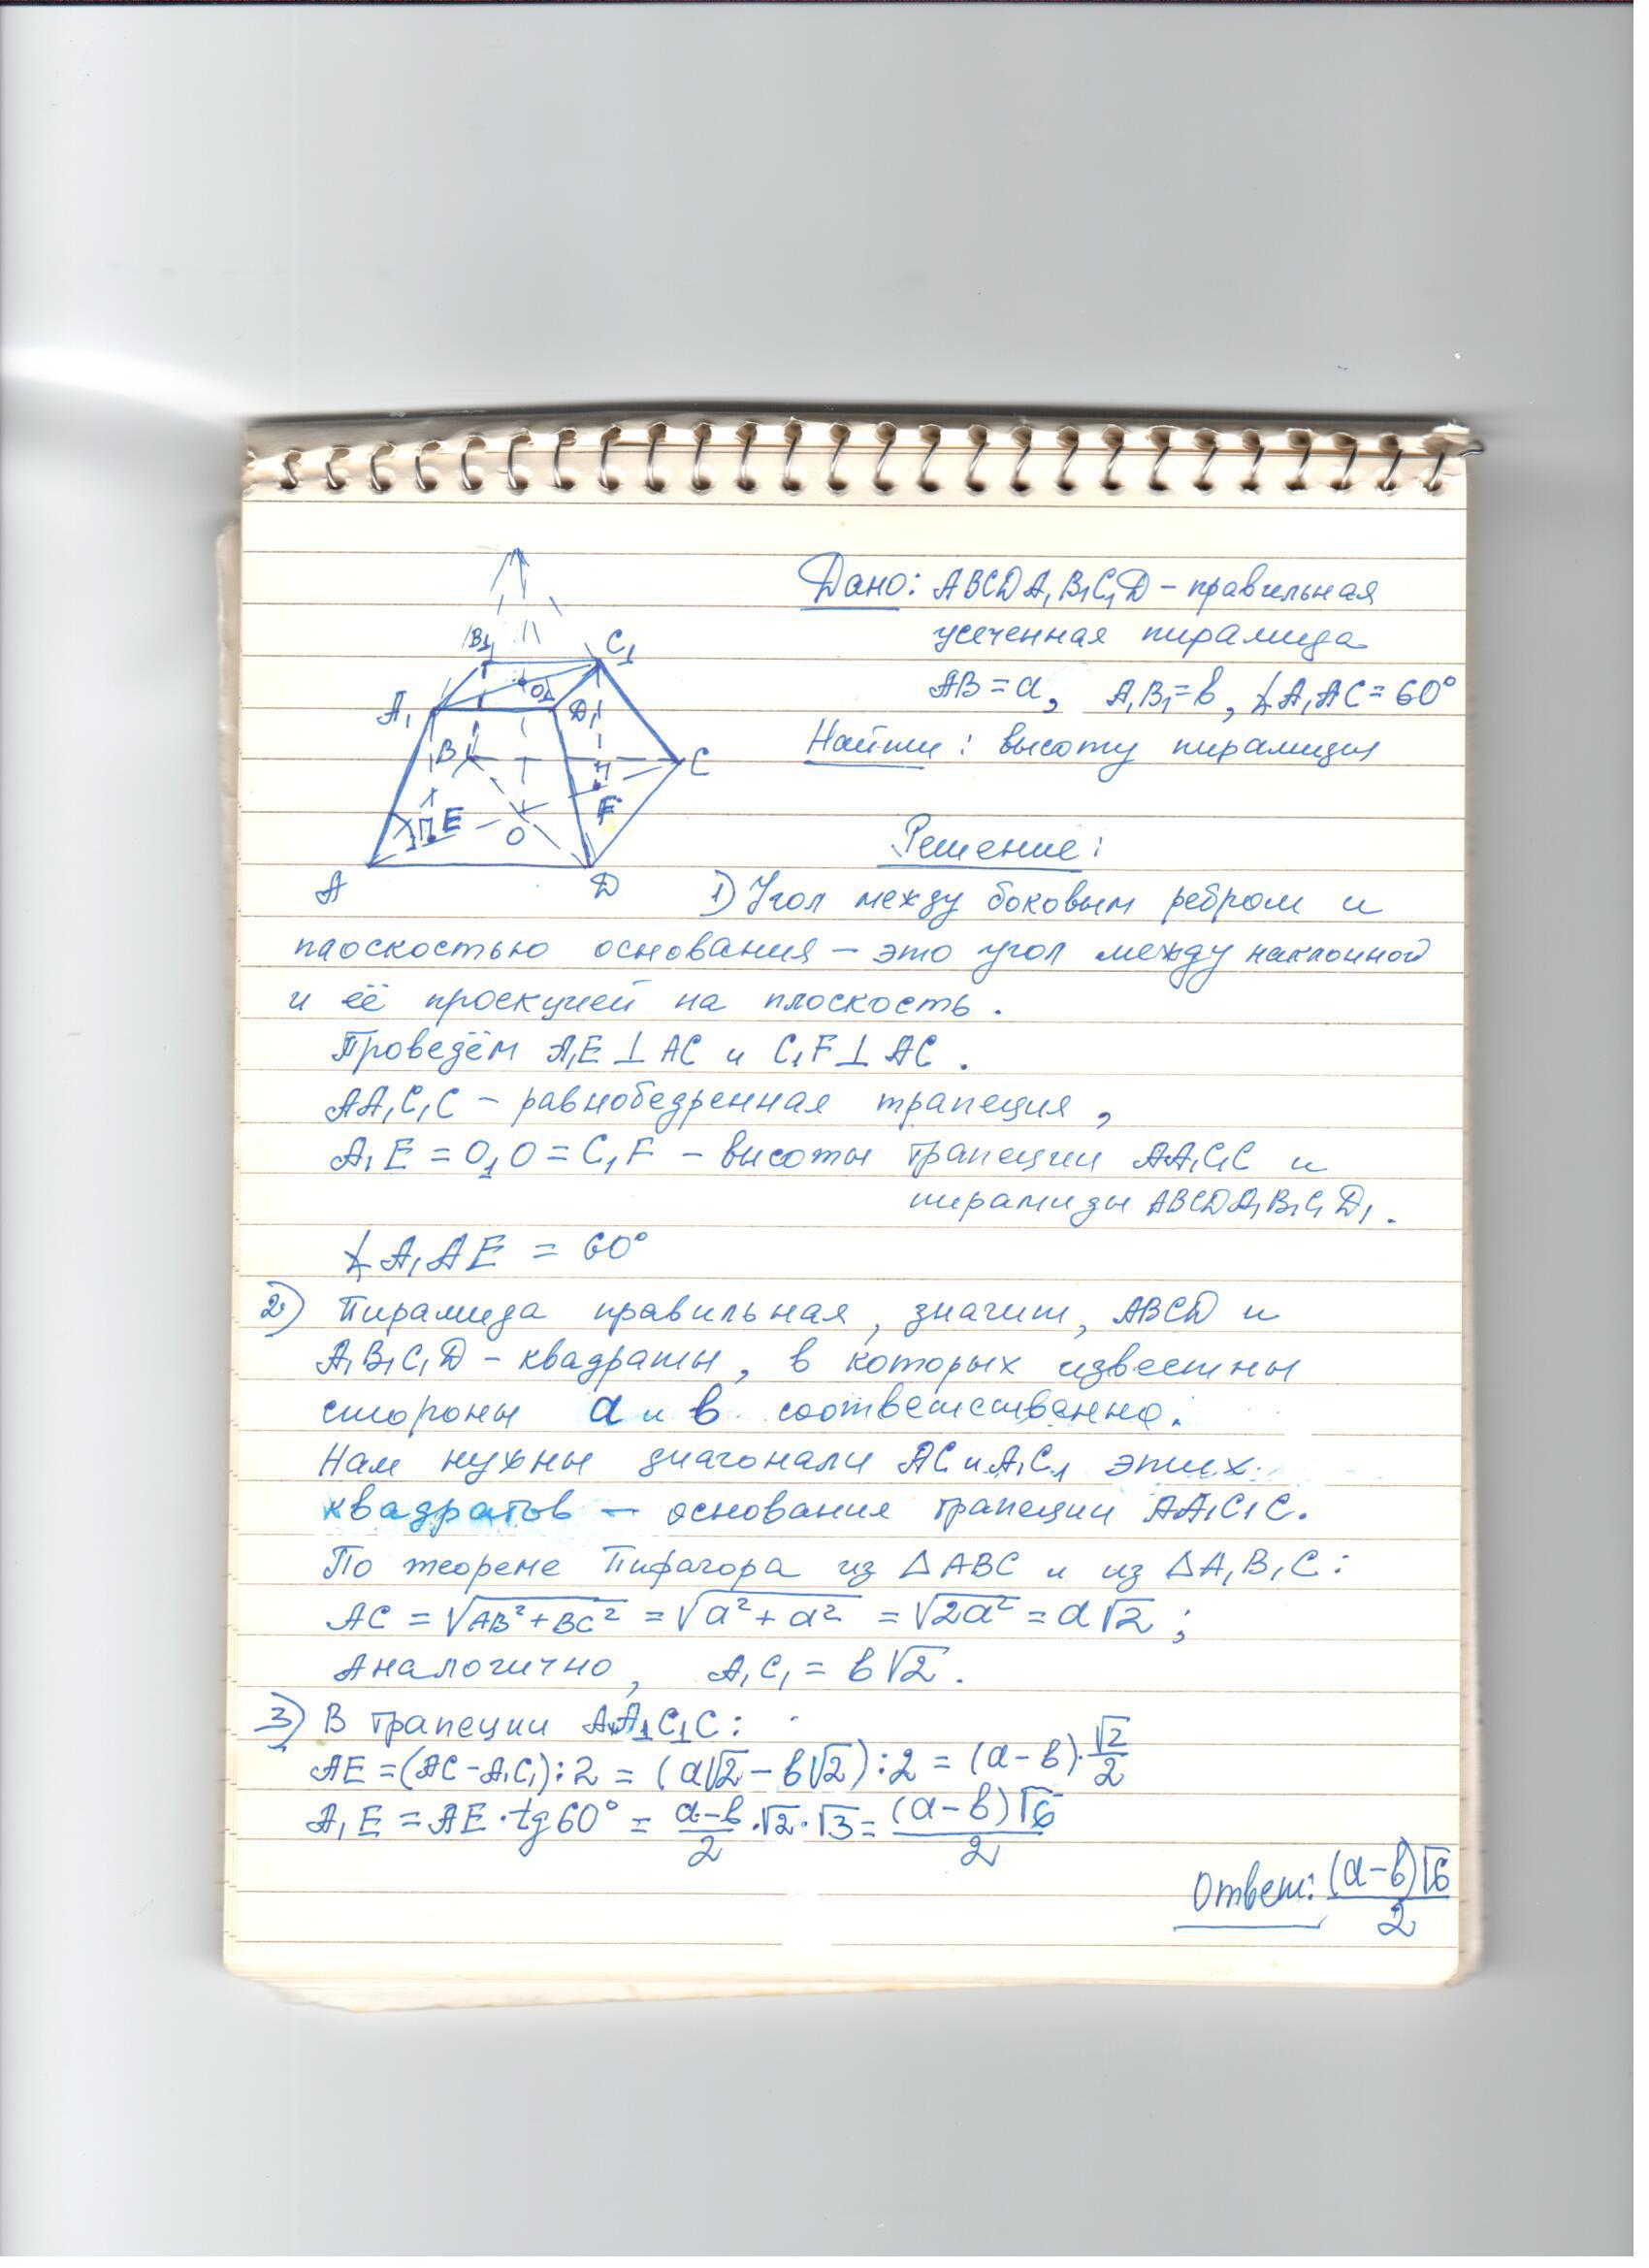 Дано: ABCDA₁B₁C₁D – правильная
усеченная пирамида
AB = a, A₁B₁ = b, ∡A₁AC = 60°
Найти: высоту пирамиды
B₁
C₁
O₁
A₁
D₁
B
C
E
F
O
A
D
Решение:
1) Угол между боковым ребром и
плоскостью основания – это угол между наклонной
и её проекцией на плоскость.
Проведём A₁E ⊥ AC и C₁F ⊥ AC.
AA₁C₁C – равнобедренная трапеция,
A₁E = O₁O = C₁F – высоты трапеции AA₁C₁C и
пирамиды ABCDA₁B₁C₁D₁.
∡A₁AE = 60°
2) Пирамида правильная, значит, ABCD и
A₁B₁C₁D – квадраты, в которых известны
стороны a и b соответственно.
Нам нужны диагонали AC и A₁C₁ этих
квадратов – основания трапеции AA₁C₁C.
По теореме Пифагора из ΔABC и из ΔA₁B₁C:
AC = √(AB² + BC²) = √(a² + a²) = √(2a²) = a√2;
Аналогично, A₁C₁ = b√2.
3) В трапеции AA₁C₁C:
AE = (AC – A₁C₁) : 2 = (a√2 – b√2) : 2 = (a – b) · √2/2
A₁E = AE · tg60° = (a–b)/2 · √2 · √3 = (a – b)√6/2
Ответ: (a – b)√6/2